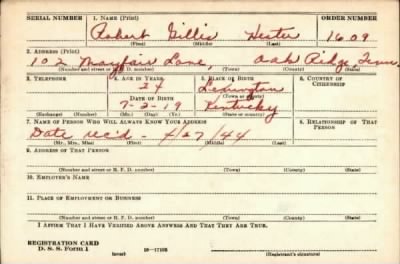 SERIAL NUMBER 1. NAME (Print) ORDER NUMBER
Robert Gillis Hester 1609
(First) (Middle) (Last)
2. ADDRESS (Print)
102 Mayfair Lane, Oak Ridge Tenn.
(Number and street or R. F. D. number) (Town) (County) (State)
3. TELEPHONE 4. AGE IN YEARS 5. PLACE OF BIRTH 6. COUNTRY OF CITIZENSHIP
24 Lexington
DATE OF BIRTH (Town or county)
7-2-19 Kentucky
(Exchange) (Number) (Mo.) (Day) (Yr.) (State or country)
7. NAME OF PERSON WHO WILL ALWAYS KNOW YOUR ADDRESS 8. RELATIONSHIP OF THAT PERSON
Date rec'd - 4/27/44
(Mr., Mrs., Miss) (First) (Middle) (Last)
9. ADDRESS OF THAT PERSON
(Number and street or R. F. D. number) (Town) (County) (State)
10. EMPLOYER'S NAME
11. PLACE OF EMPLOYMENT OR BUSINESS
(Number and street or R. F. D. number) (Town) (County) (State)
I AFFIRM THAT I HAVE VERIFIED ABOVE ANSWERS AND THAT THEY ARE TRUE.
REGISTRATION CARD
D. S. S. Form 1 (over) 16-17105 (Registrant's signature)